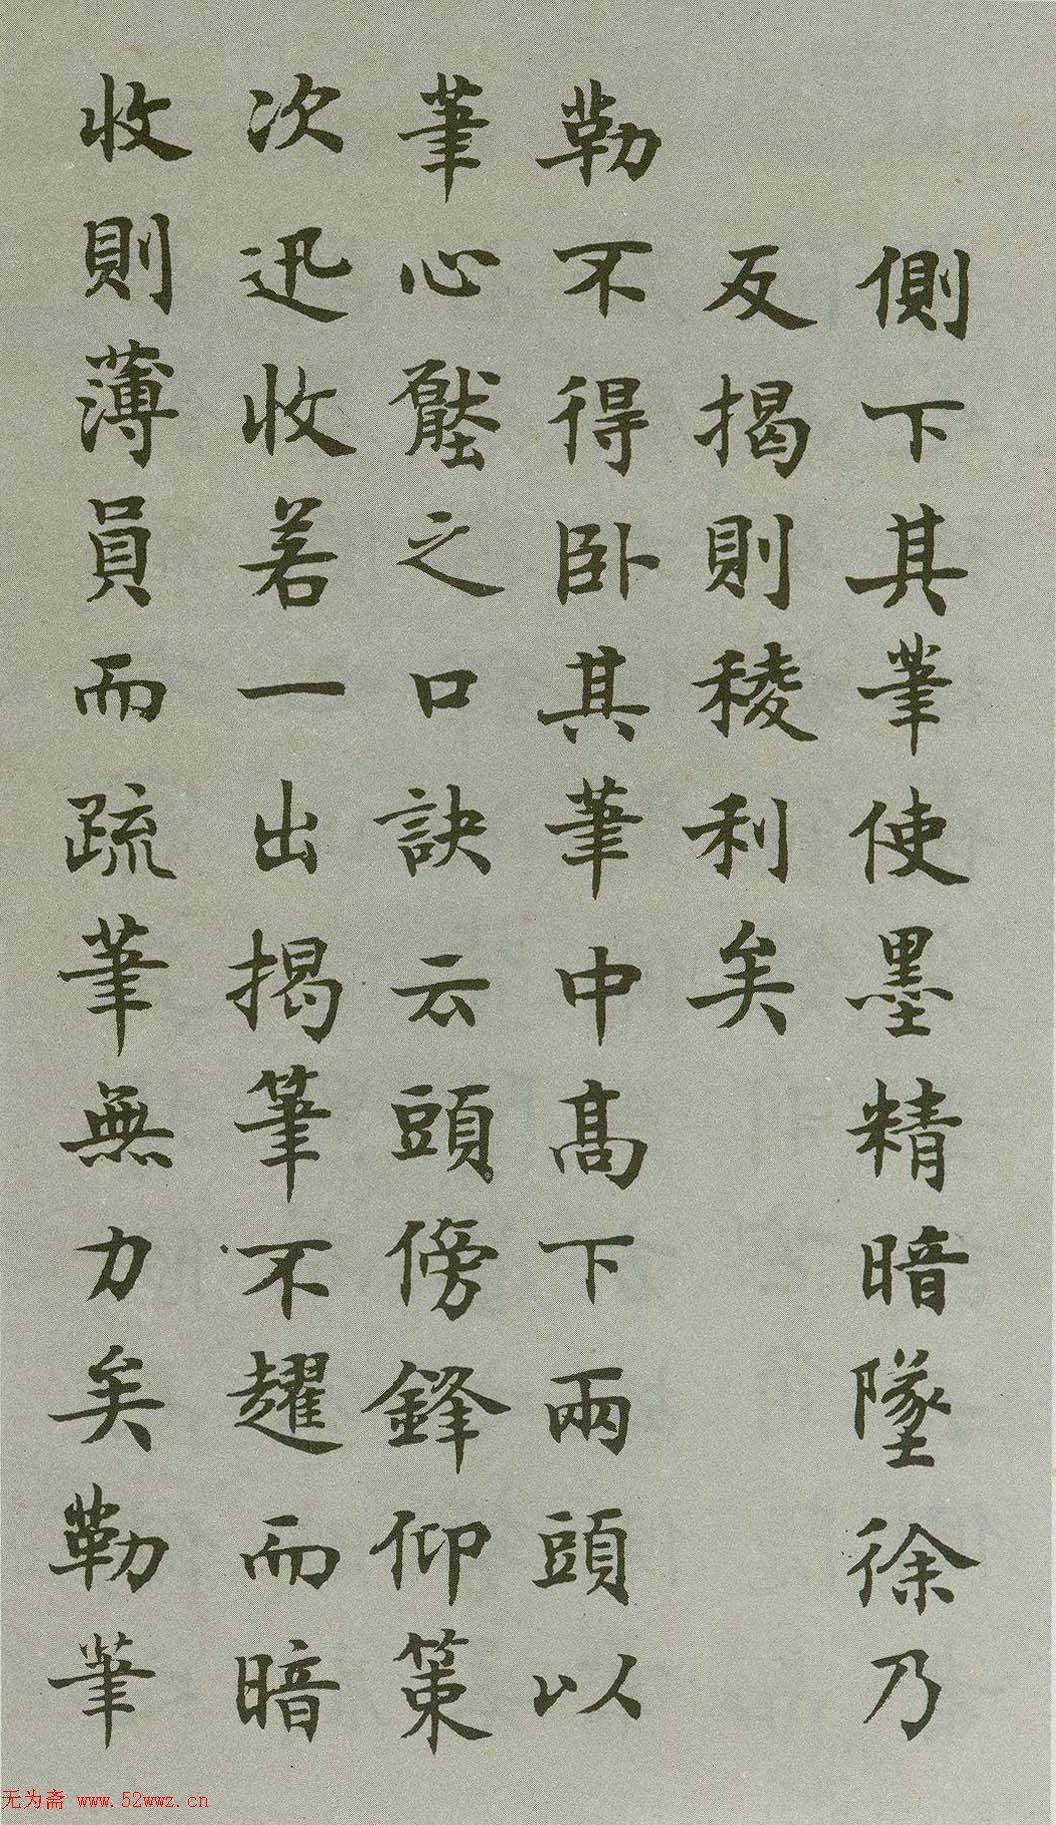 側下其筆使墨精暗墜徐乃
反揭則稜利矣
勒不得臥其筆中高下兩頭以
筆心壓之口訣云頭傍鋒仰策
次迅收若一出揭筆不趯而暗
收則薄員而疏筆無力矣勒筆
无为斋 www.52wwz.cn